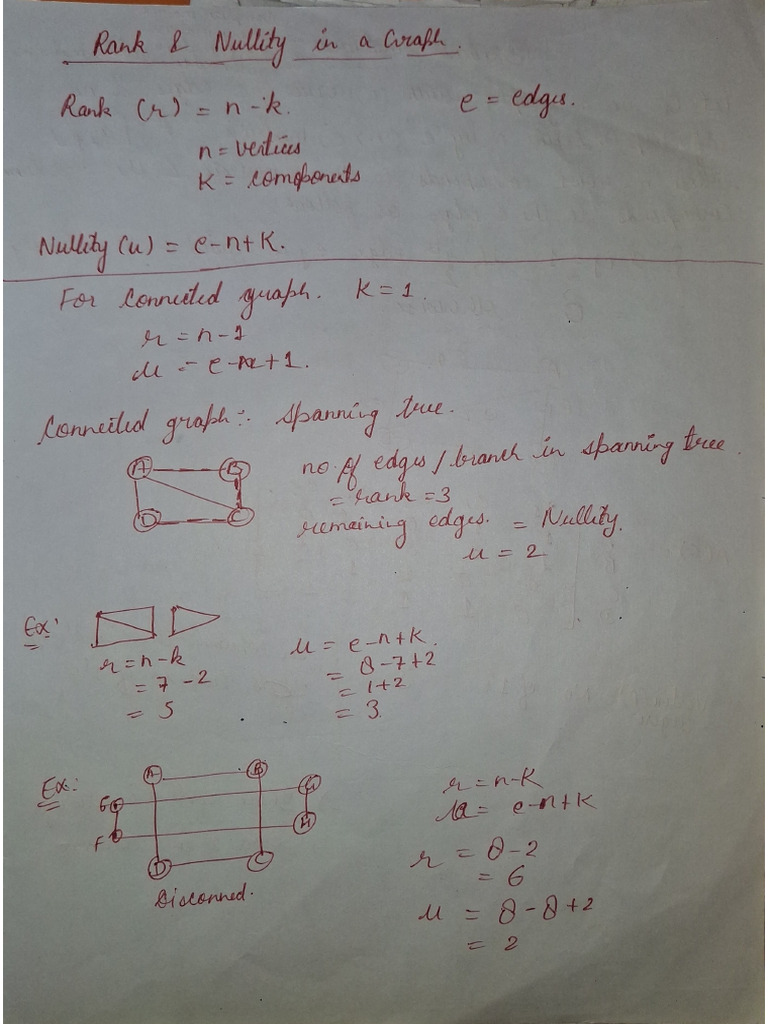 Rank & Nullity in a Graph.
Rank (r) = n-k.
e = edges.
n = vertices
K = components
Nullity (u) = e-n+K.
For connected graph. K = 1.
r = n-1
u = e-n+1.
Connected graph:- Spanning tree.
A B
D C
no. of edges / branch in spanning tree
= rank = 3
remaining edges. = Nullity.
u = 2
Ex:
r = n-k
= 7 - 2
= 5
u = e-n+k.
= 8-7+2
= 1+2
= 3.
Ex:
A B
E G
F H
D C
Disconned.
r = n-k
u = e-n+k
r = 8-2
= 6
u = 8-8+2
= 2